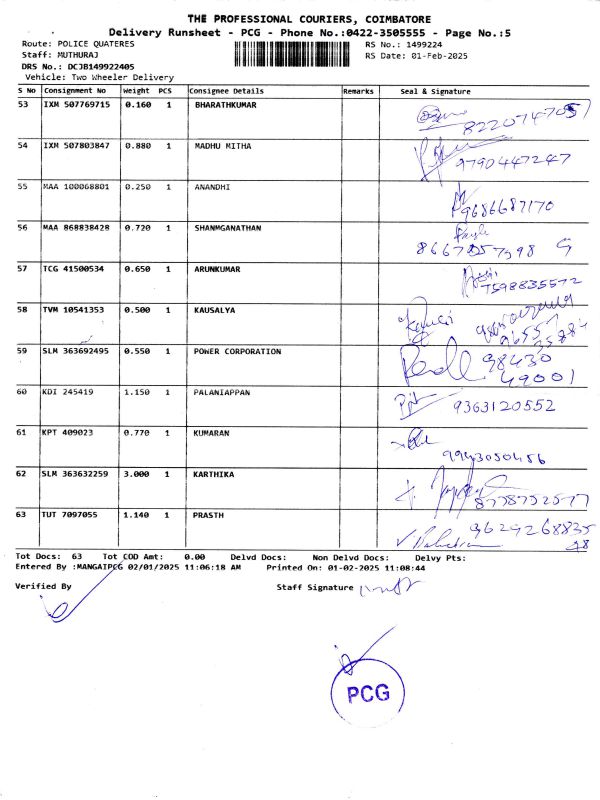 THE PROFESSIONAL COURIERS, COIMBATORE
Delivery Runsheet - PCG - Phone No.:0422-3505555 - Page No.:5
Route: POLICE QUATERES RS No.: 1499224
Staff: MUTHURAJ RS Date: 01-Feb-2025
DRS No.: DCJB149922405
Vehicle: Two Wheeler Delivery
S No Consignment No Weight PCS Consignee Details Remarks Seal & Signature
53 IXM 507769715 0.160 1 BHARATHKUMAR 8220747057
54 IXM 507803847 0.880 1 MADHU MITHA 9790447247
55 MAA 100068801 0.250 1 ANANDHI 9686687170
56 MAA 868838428 0.720 1 SHANMGANATHAN
57 TCG 41500534 0.650 1 ARUNKUMAR 7598835572
58 TVM 10541353 0.500 1 KAUSALYA
59 SLM 363692495 0.550 1 POWER CORPORATION 98430
49001
60 KDI 245419 1.150 1 PALANIAPPAN 9363120552
61 KPT 409023 0.770 1 KUMARAN 9943050456
62 SLM 363632259 3.000 1 KARTHIKA
63 TUT 7097055 1.140 1 PRASTH
Tot Docs: 63 Tot COD Amt: 0.00 Delvd Docs: Non Delvd Docs: Delvy Pts:
Entered By :MANGAIPCG 02/01/2025 11:06:18 AM Printed On: 01-02-2025 11:08:44
Verified By Staff Signature
PCG